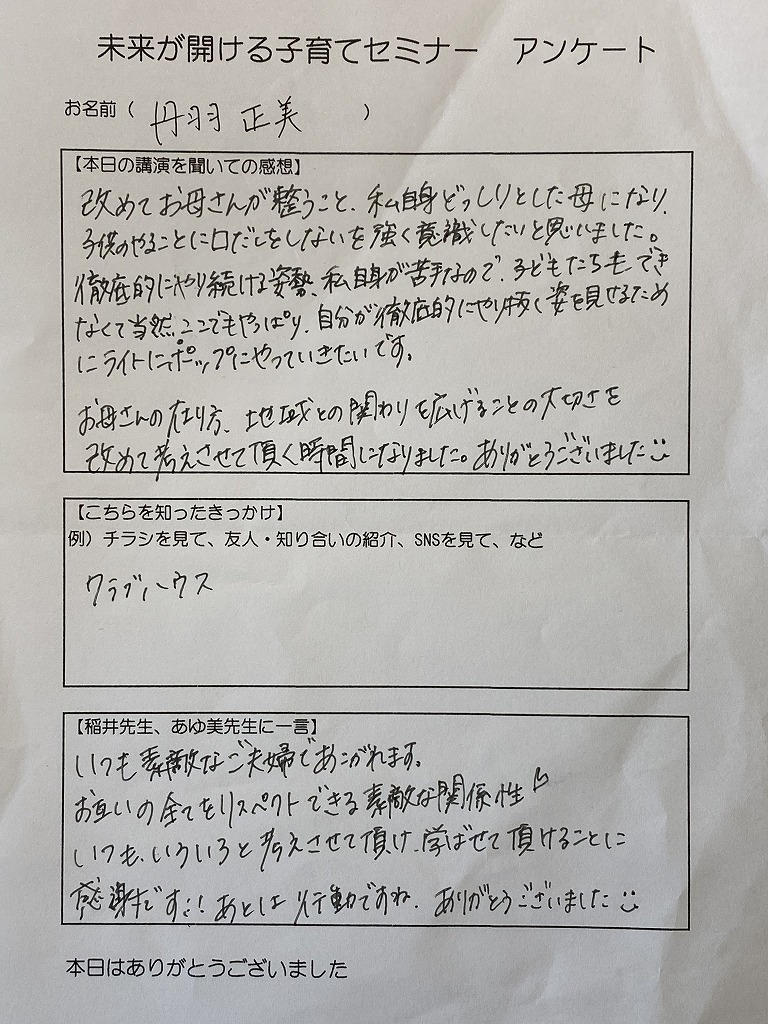 未来が開ける子育てセミナー アンケート
お名前（ 丹羽 正美 ）
【本日の講演を聞いての感想】
改めてお母さんが整うこと、私自身どっしりとした母になり、
子供のやることに口だしをしないを強く意識したいと思いました。
徹底的にやり続ける姿勢、私自身が苦手なので、子どもたちもでき
なくて当然。ここでもやっぱり、自分が徹底的にやり抜く姿を見せるため
にライトにポップにやっていきたいです。
お母さんの在り方、地域との関わりを広げることの大切さを
改めて考えさせて頂く時間になりました。ありがとうございました
【こちらを知ったきっかけ】
例）チラシを見て、友人・知り合いの紹介、SNSを見て、など
クラブハウス
【稲井先生、あゆ美先生に一言】
いつも素敵なご夫婦であこがれます。
お互いの全てをリスペクトできる素敵な関係性
いつも、いろいろと考えさせて頂け、学ばせて頂けることに
感謝です！あとは行動ですね、ありがとうございました
本日はありがとうございました